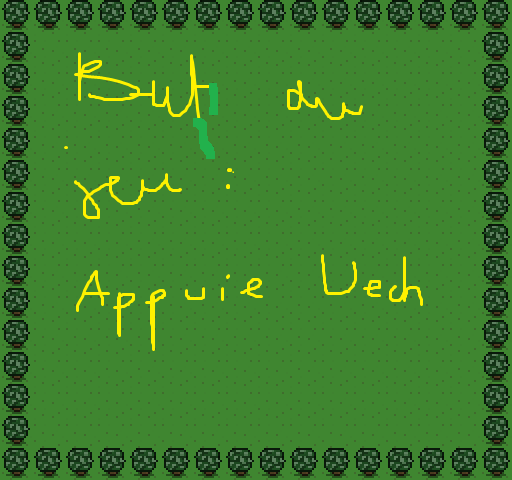 But du
jeu :
Appuie Uech